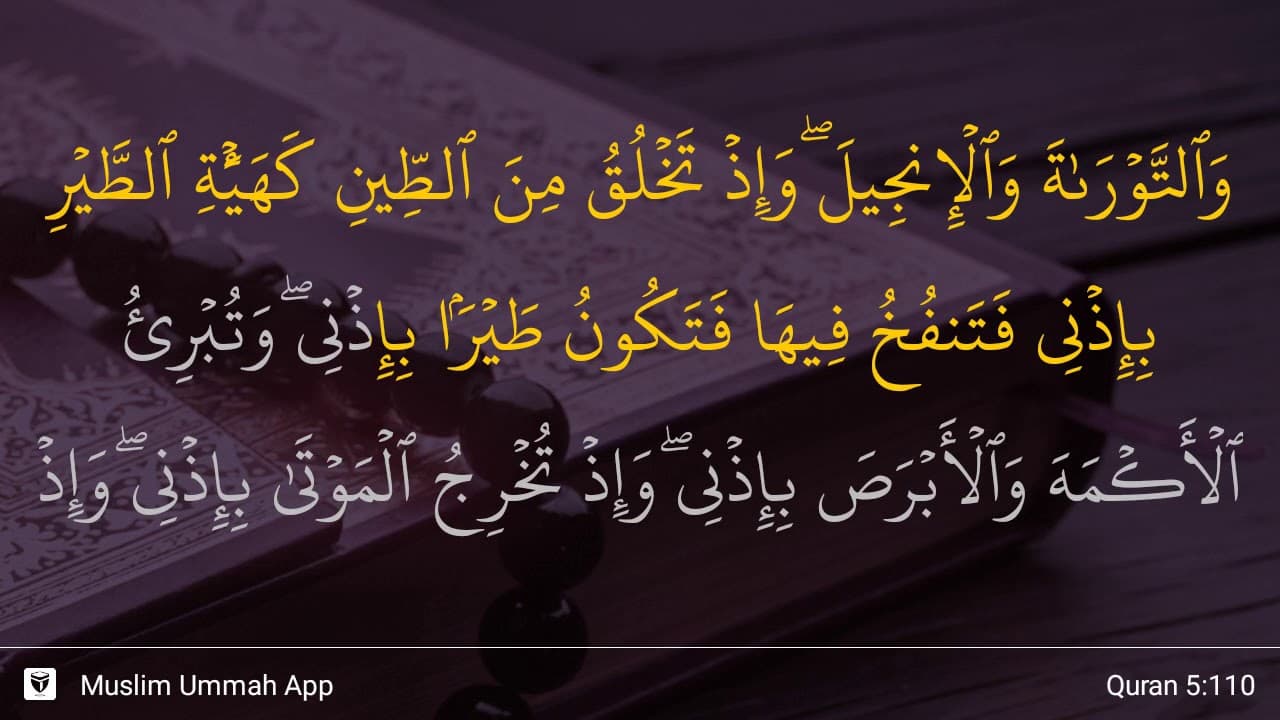 وَٱلتَّوۡرَىٰةَ وَٱلۡإِنجِيلَۖ وَإِذۡ تَخۡلُقُ مِنَ ٱلطِّينِ كَهَيۡـَٔةِ ٱلطَّيۡرِ
بِإِذۡنِي فَتَنفُخُ فِيهَا فَتَكُونُ طَيۡرَۢا بِإِذۡنِيۖ وَتُبۡرِئُ
ٱلۡأَكۡمَهَ وَٱلۡأَبۡرَصَ بِإِذۡنِيۖ وَإِذۡ تُخۡرِجُ ٱلۡمَوۡتَىٰ بِإِذۡنِيۖ وَإِذۡ
Muslim Ummah App
Quran 5:110